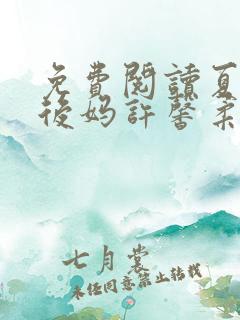 免費閱讀夏
後媽許馨柔
七月裳
未經同意禁止轉載